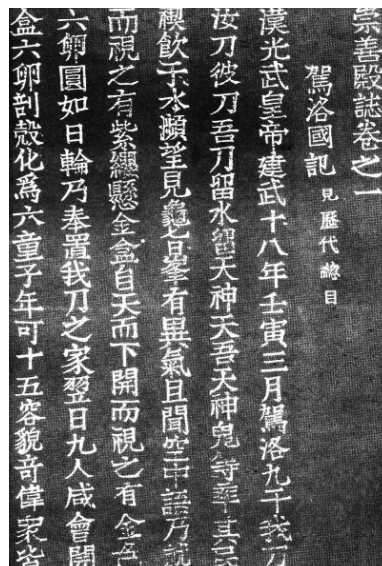 崇善殿誌卷之一
駕洛國記 見歷代緫目
漢光武皇帝建武十八年壬寅三月駕洛九干我刀
汝刀彼刀吾刀留水留天神天吾天神鬼等率其民
禊飮于水瀕望見龜旨峯有異氣且聞空中語乃就
而視之有紫纓懸金盒自天而下開而視之有金色
六卵圓如日輪乃奉置我刀之家翌日九人咸會開
盒六卵剖殼化爲六童子年可十五容貌竒偉衆皆